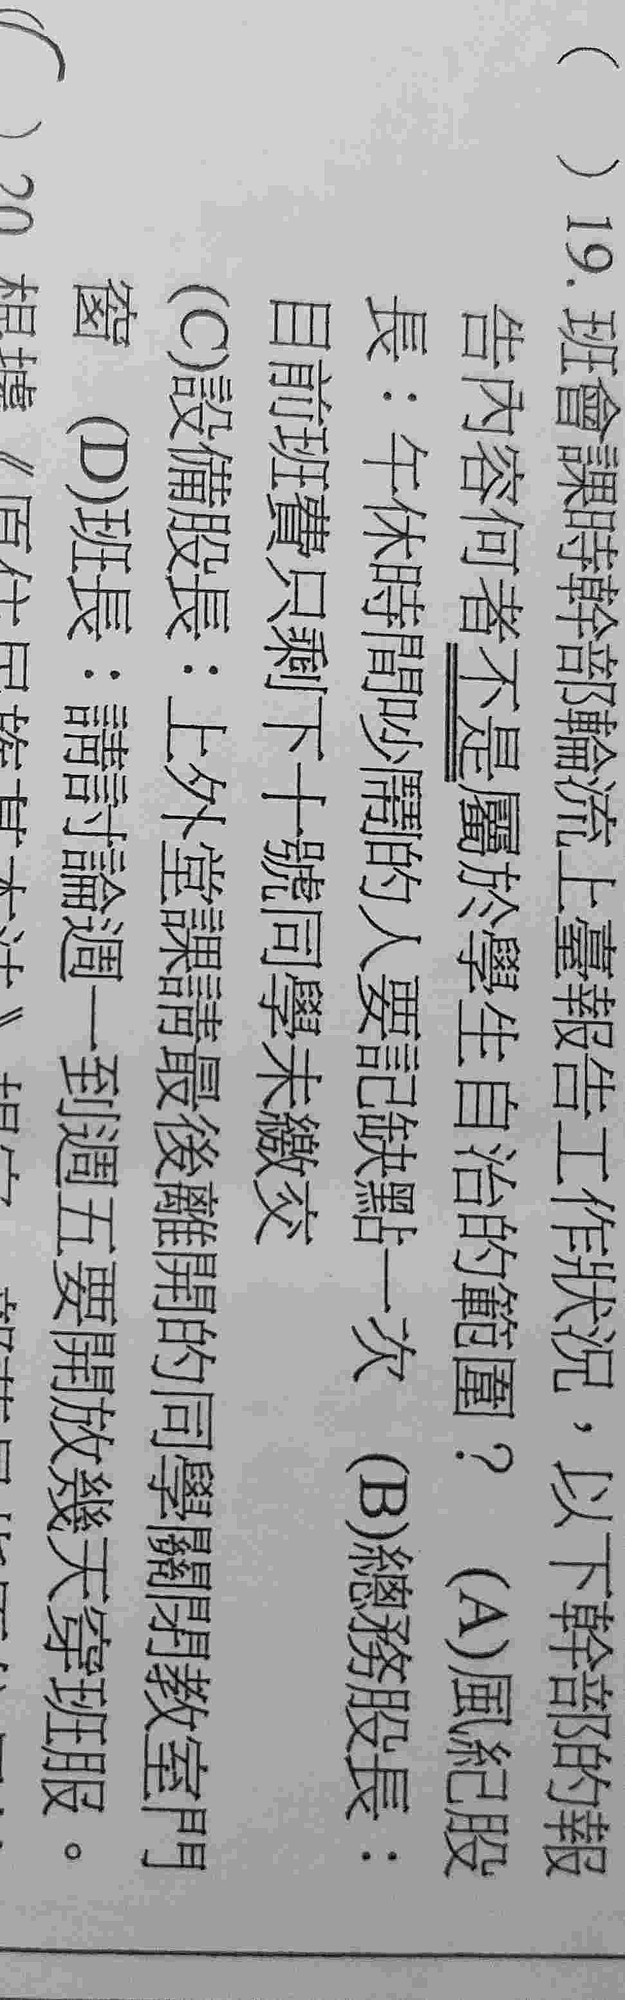 (　) 19. 班會課時幹部輪流上臺報告工作狀況，以下幹部的報
告內容何者不是屬於學生自治的範圍？　(A)風紀股
長：午休時間吵鬧的人要記缺點一次　(B)總務股長：
目前班費只剩下十號同學未繳交
(C)設備股長：上外堂課請最後離開的同學關閉教室門
窗　(D)班長：請討論週一到週五要開放幾天穿班服。
) 20 根據《原住民族基本法》規定